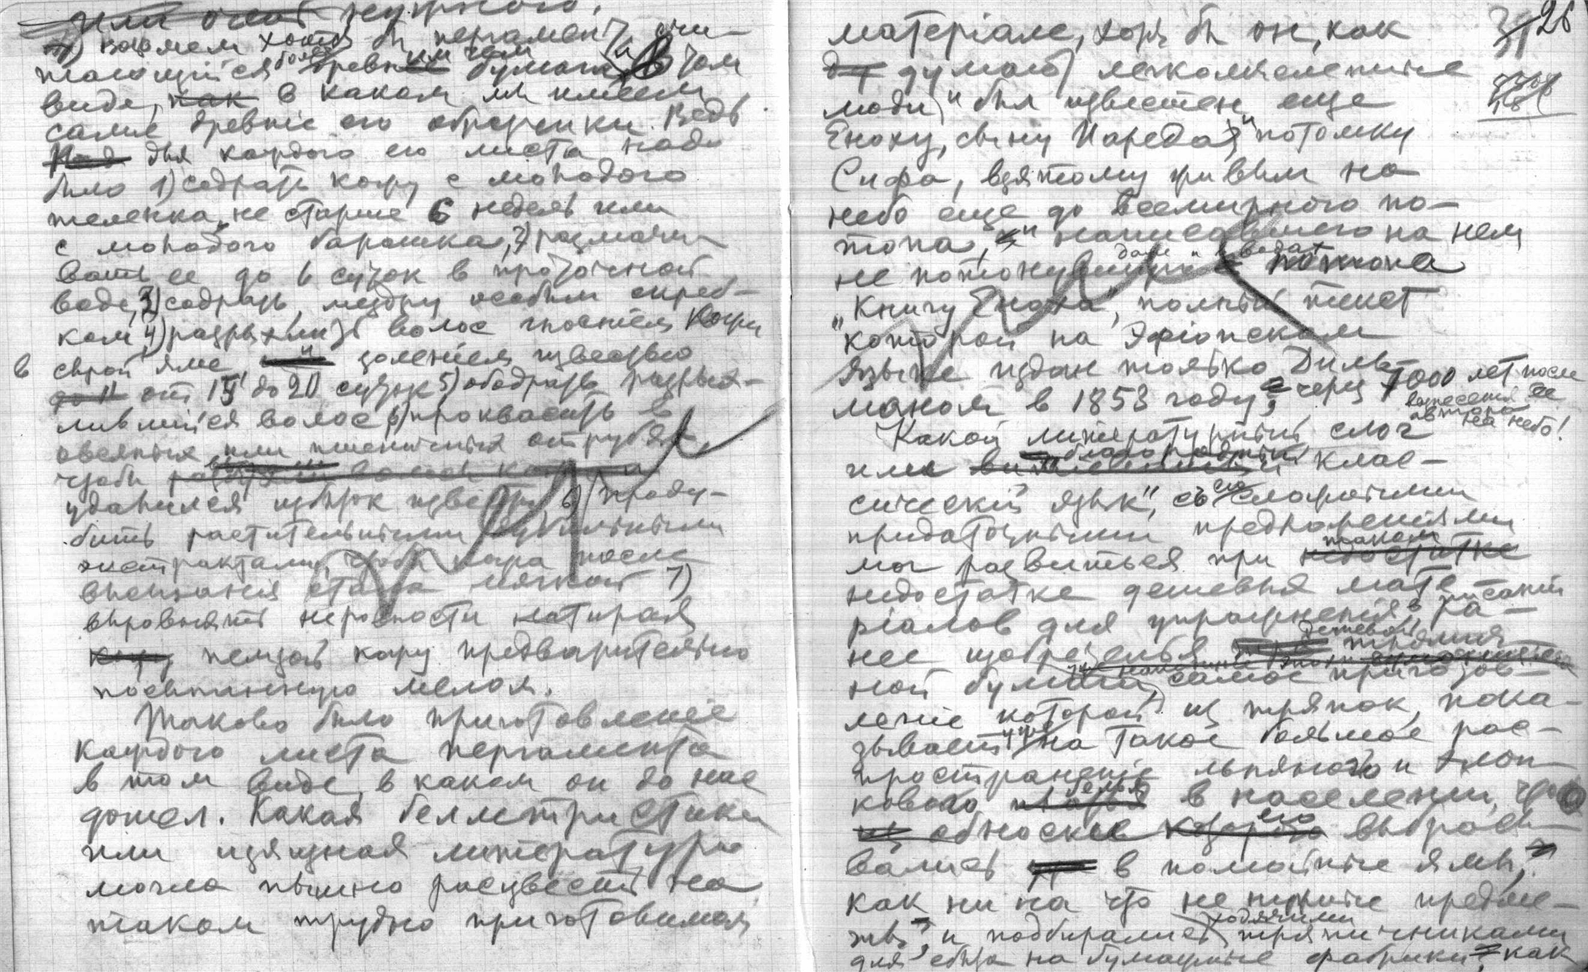 или очень нужного.
Возьмем хотя бы пергамент, счи-
тающийся более древним чем бумага, и в том
виде, как в каком мы имеем
самые древние его образчики. Ведь
для каждого его листа надо
было 1) содрать кожу с молодого
теленка, не старше 6 недель или
с молодого барашка, 2) размачи-
вать ее до 6 суток в проточной
воде, 3) содрать мездру особым скреб-
ком 4) разрыхлить волос гноеніем кожи
в сырой яме и золеніем известью
от 15 до 20 суток 5) ободрать разрых-
лившійся волос 6) проквасить в
овсяных или пшеничных отрубях,
чтобы
удалился избыток извести 6) проду-
бить растительными дубильными
экстрактами, чтобы кожа после
высыханія стала мягкой 7)
выровнять неровности натирая
пемзой кожу предварительно
посыпанную мелом.
Таково было приготовленіе
каждого листа пергамента
в том виде, в каком он до нас
дошел. Какая беллетристика
или изящная литература
могла пышно расцвести на
таком трудно приготовимом
матеріале, хотя бы он, как
думают легкомысленные
люди, и был известен еще
Еноху, сыну Иареда, потомку
Сифа, взятому живым на
небо еще до Всемирного по-
топа, написавшего на нем
не потонувшую даже
„Книгу Еноха", полный текст
которой на Эфіопском
языке издан только Диль-
маном в 1853 году, через 7000 лет после
вознесенія ее
автора на небо!
Какой литературный слог
или благородный клас-
сическій язык, съ его сложными
придаточными предложеніями
мог развиться при таком
недостатке дешевых мате-
ріалов для упражненія в писаніи ра-
нее изобретенья дешевой тряпич-
ной бумаги, самое приготов-
леніе которой из тряпок, пока-
зывает уже на такое большое рас-
пространеніе льняного и хлоп-
кового белья в населеніи, что
обноски его выбрасы-
вались в помойные ямы,
как ни на что не нужные предме-
ты, и подбирались ходячими тряпичниками
для сбыта на бумажные фабрики как
26